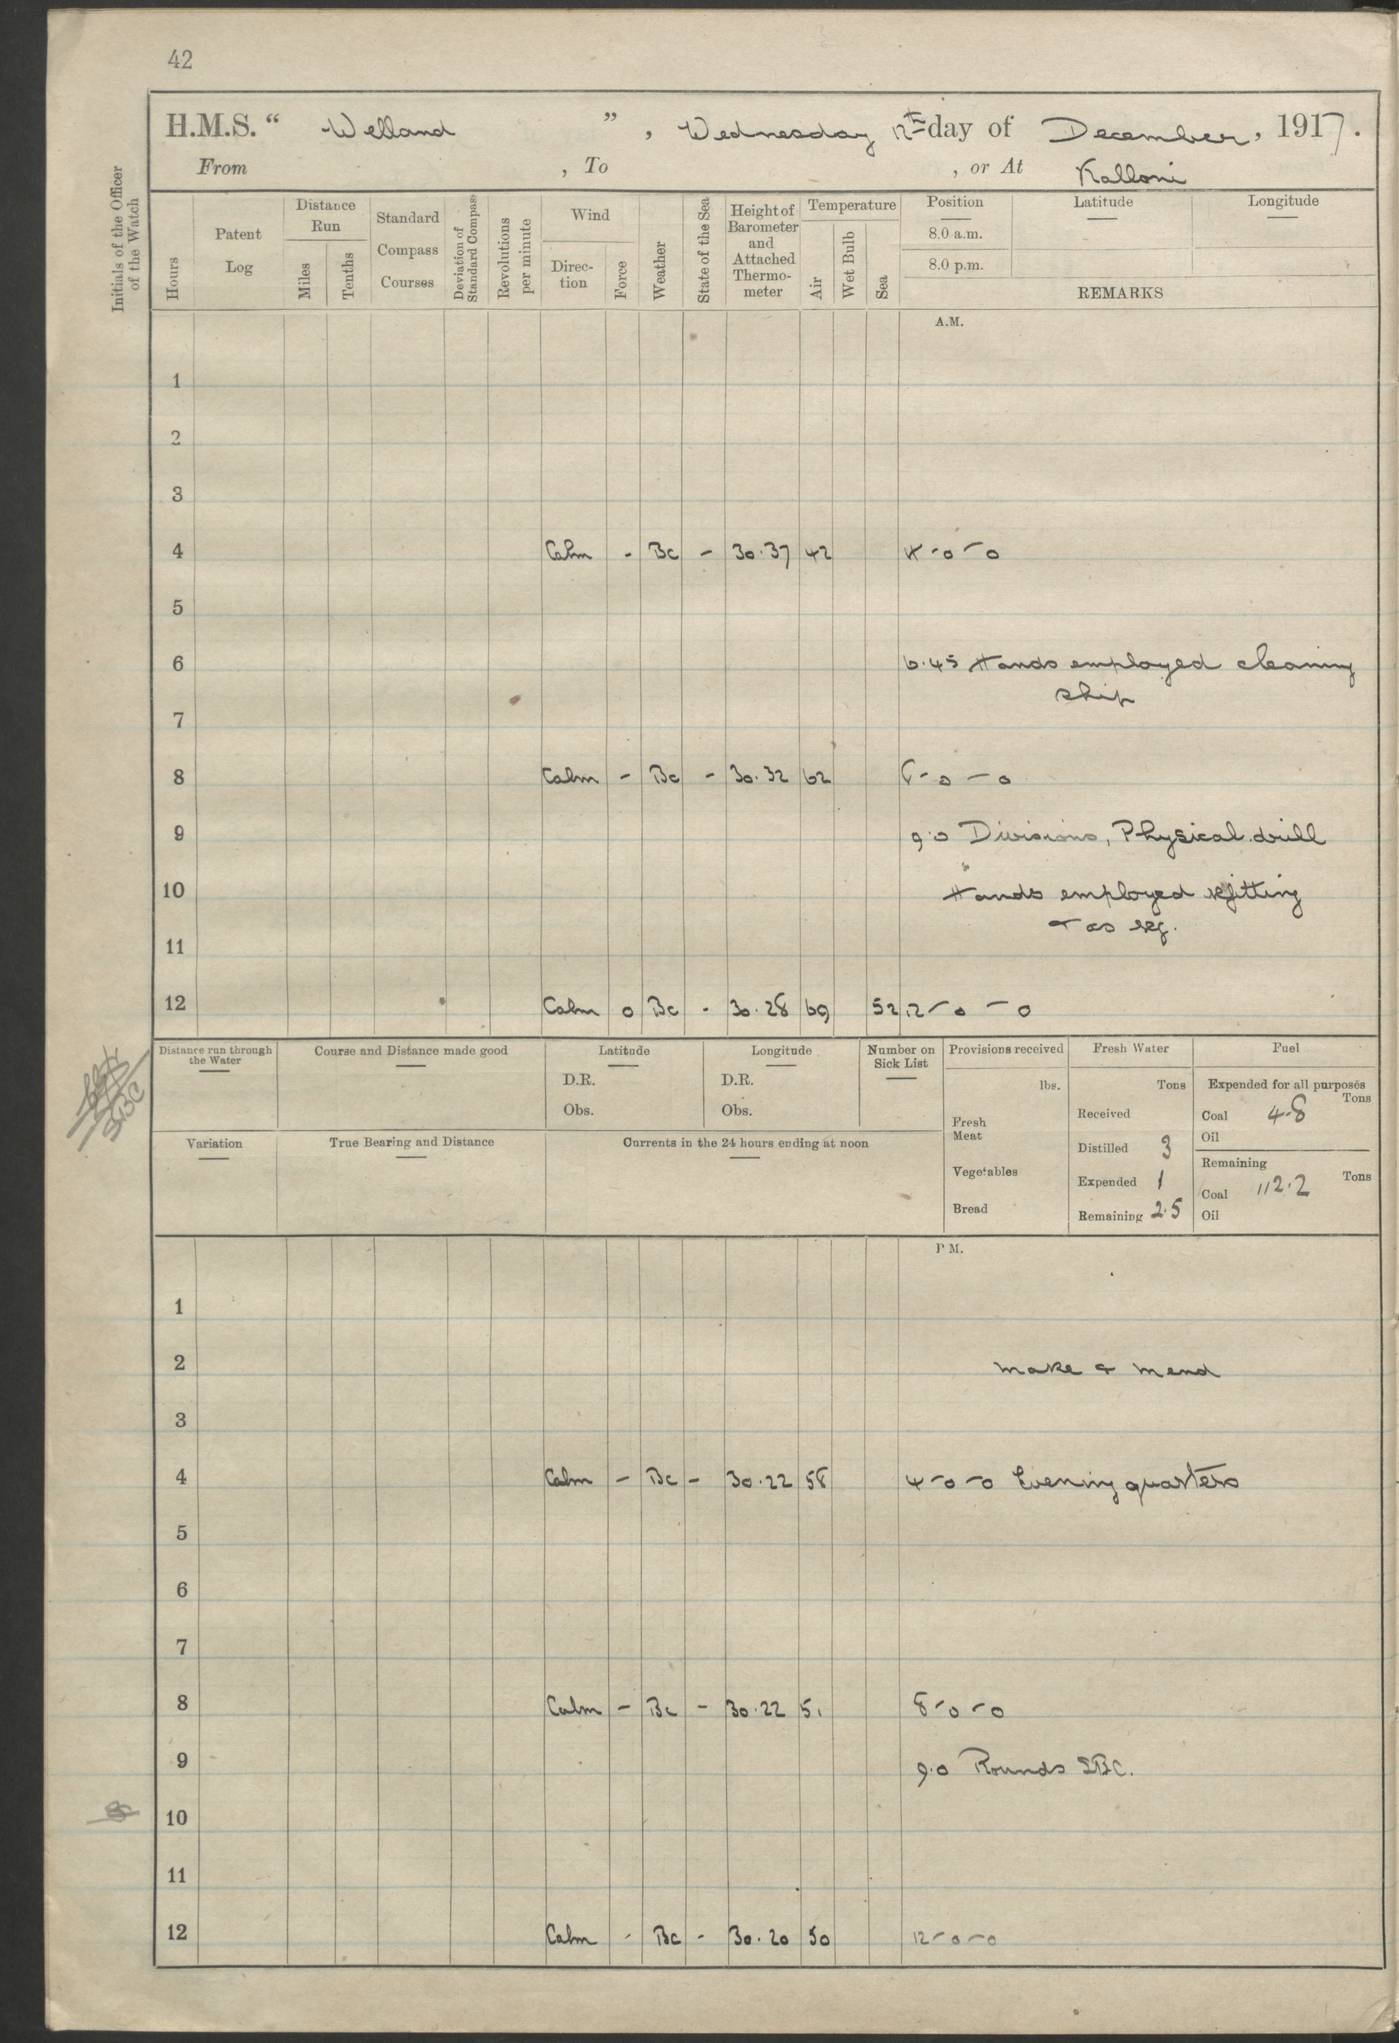 42
H.M.S. “ Welland ” , Wednesday 12th day of December, 1917.
From , To , or At Kalloni
Initials of the Officer of the Watch
Hours
Patent Log
Distance Run
Miles
Tenths
Standard Compass Courses
Deviation of Standard Compass
Revolutions per minute
Wind
Direc-tion
Force
Weather
State of the Sea
Height of Barometer and Attached Thermo-meter
Temperature
Air
Wet Bulb
Sea
Position
8.0 a.m.
8.0 p.m.
Latitude
Longitude
REMARKS
A.M.
1
2
3
4 Calm - Bc - 30.37 42 4-0-0
5
6 6.45 Hands employed cleaning
ship
7
8 Calm - Bc - 30.32 62 8-0-0
9 9.0 Divisions, Physical drill
10 Hands employed refitting
& as req.
11
12 Calm 0 Bc - 30.28 69 52 12-0-0
Distance run through the Water
Course and Distance made good
Latitude
D.R.
Obs.
Longitude
D.R.
Obs.
Number on Sick List
Provisions received
lbs.
Fresh Meat
Vegetables
Bread
Fresh Water
Tons
Received
Distilled 3
Expended 1
Remaining 2.5
Fuel
Expended for all purposes
Tons
Coal 4.8
Oil
Remaining
Tons
Coal 112.2
Oil
Variation
True Bearing and Distance
Currents in the 24 hours ending at noon
P M.
1
2 make & mend
3
4 Calm - Bc - 30.22 58 4-0-0 Evening quarters
5
6
7
8 Calm - Bc - 30.22 51 8-0-0
9 9.0 Rounds SBC.
10
11
12 Calm - Bc - 30.20 50 12-0-0